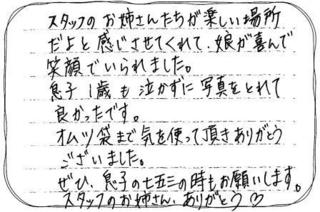 スタッフのお姉さんたちが楽しい場所
だよと感じさせてくれて、娘が喜んで
笑顔でいられました。
息子1歳も泣かずに写真をとれて
良かったです。
オムツ袋まで気を使って頂きありがとう
ございました。
ぜひ、息子の七五三の時もお願いします。
スタッフのお姉さん、ありがとう♡